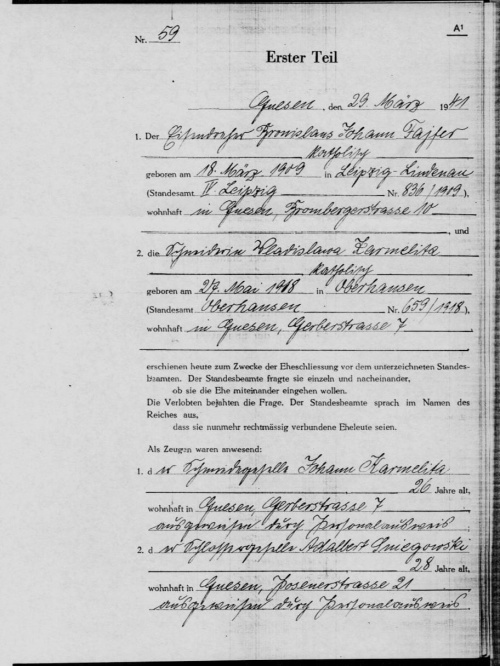 Nr. 59
A1
Erster Teil
Gnesen, den 29. März 1941
1. Der Eisendreher Bronislaus Johann Fajfer
katholisch
geboren am 18. März 1909 in Leipzig-Lindenau
(Standesamt IV Leipzig Nr. 836/1909),
wohnhaft in Gnesen, Brombergerstrasse 10
, und
2. die Schneiderin Wladislawa Karmelita
katholisch
geboren am 27. Mai 1918 in Oberhausen
(Standesamt Oberhausen Nr. 659/1918),
wohnhaft in Gnesen, Gerberstrasse 7
erschienen heute zum Zwecke der Eheschliessung vor dem unterzeichneten Standes-
beamten. Der Standesbeamte fragte sie einzeln und nacheinander,
ob sie die Ehe miteinander eingehen wollen.
Die Verlobten bejahten die Frage. Der Standesbeamte sprach im Namen des
Reiches aus,
dass sie nunmehr rechtmässig verbundene Eheleute seien.
Als Zeugen waren anwesend:
1. der Schmiedegeselle Johann Karmelita
26 Jahre alt,
wohnhaft in Gnesen, Gerberstrasse 7
ausgewiesen durch Personalausweis
2. der Schlossergeselle Adalbert Sniegowski
28 Jahre alt,
wohnhaft in Gnesen, Posenerstrasse 21
ausgewiesen durch Personalausweis